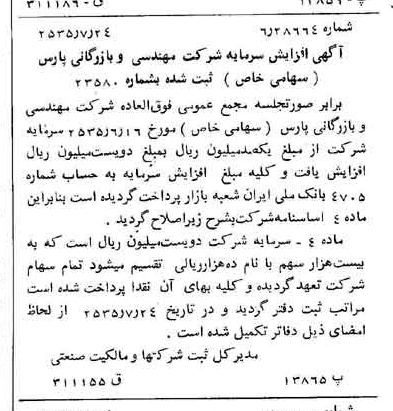 شماره ۶٫۲۸۶۶۴ ۲۵۳۵٫۷٫۲۴
آگهی افزایش سرمایه شرکت مهندسی و بازرگانی پارس
( سهامی خاص ) ثبت شده بشماره ۲۳۵۸۰
برابر صورتجلسه مجمع عمومی فوق‌العاده شرکت مهندسی
و بازرگانی پارس ( سهامی خاص ) مورخ ۲۵۳۵٫۶٫۱۶ سرمایه
شرکت از مبلغ یکصدمیلیون ریال بمبلغ دویست‌میلیون ریال
افزایش یافت و کلیه مبلغ افزایش سرمایه به حساب شماره
۴۷۰۵ بانک ملی ایران شعبه بازار پرداخت گردیده است بنابراین
ماده ۴ اساسنامه شرکت بشرح زیر اصلاح گردید .
ماده ۴ ـ سرمایه شرکت دویست‌میلیون ریال است که به
بیست‌هزار سهم با نام ده‌هزار ریالی تقسیم میشود تمام سهام
شرکت تعهد گردیده و کلیه بهای آن نقدا پرداخت شده است
مراتب ثبت دفتر گردید و در تاریخ ۲۵۳۵٫۷٫۲۴ از لحاظ
امضای ذیل دفاتر تکمیل شده است .
مدیر کل ثبت شرکتها و مالکیت صنعتی
پ ۱۳۸۶۵ ق ۳۱۱۱۵۵